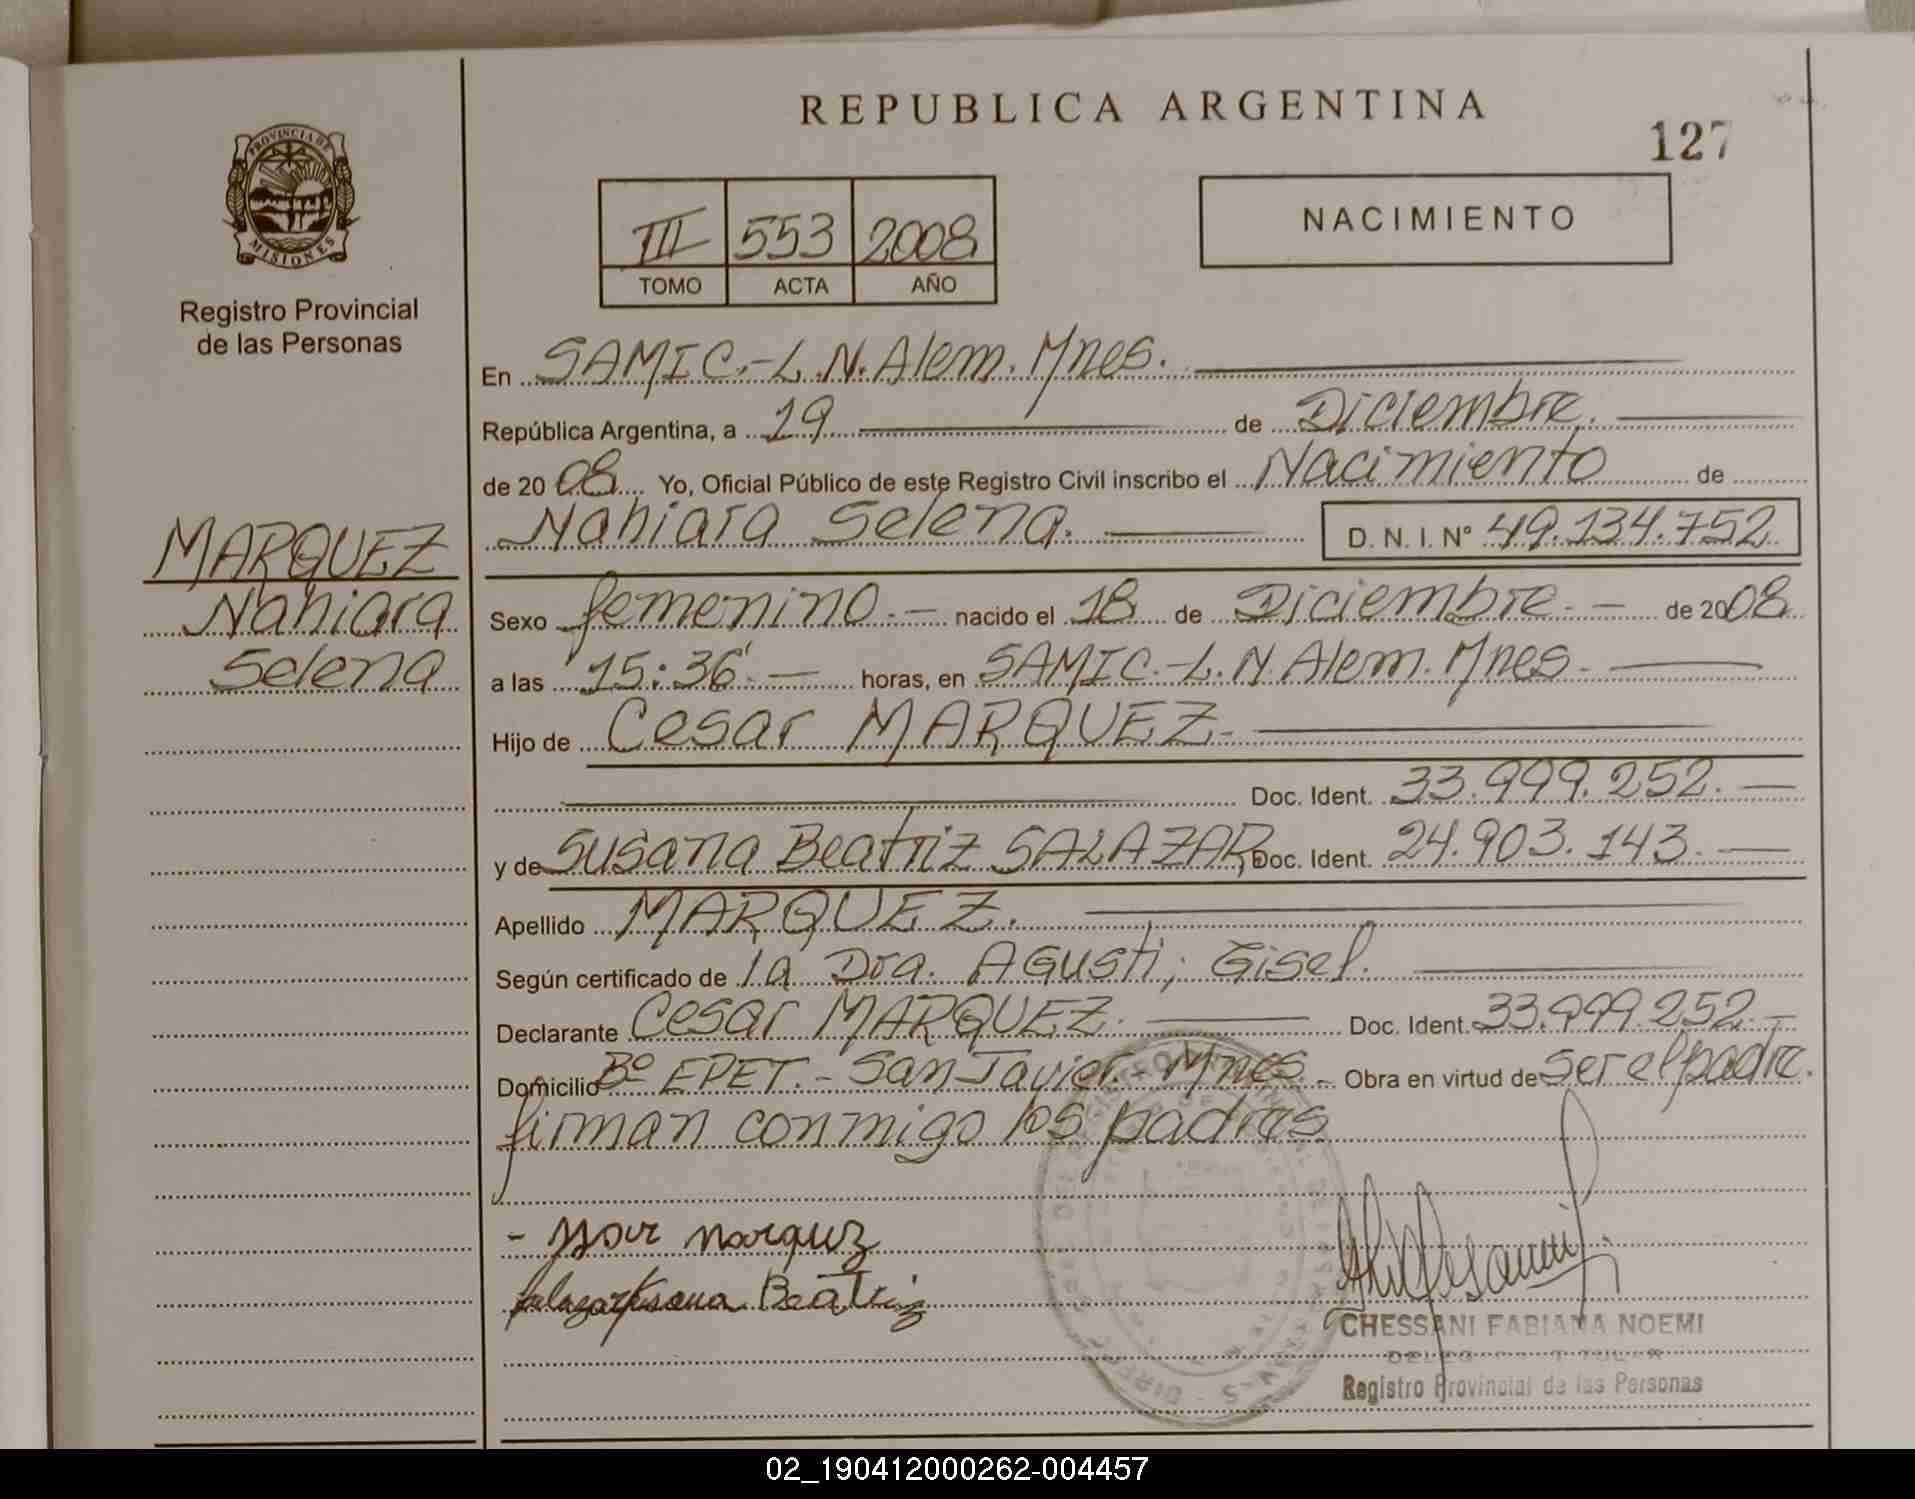 REPUBLICA ARGENTINA
127
PROVINCIA DE MISIONES
Registro Provincial
de las Personas
III 553 2008
TOMO ACTA AÑO
NACIMIENTO
En SAMIC.-L.N.Alem.Mnes.
República Argentina, a 19 de Diciembre.
de 2008 Yo, Oficial Público de este Registro Civil inscribo el Nacimiento de
Nahiara Selena. D. N. I. Nº 49.134.752
MARQUEZ
Nahiara
Selena
Sexo femenino.- nacido el 18 de Diciembre.- de 2008
a las 15:36'.- horas, en SAMIC.-L.N.Alem.Mnes.
Hijo de Cesar MARQUEZ.
Doc. Ident. 33.999.252.-
y de Susana Beatriz SALAZAR, Doc. Ident. 24.903.143.-
Apellido MARQUEZ.
Según certificado de la Dra. Agusti, Gisel.
Declarante Cesar MARQUEZ. Doc. Ident. 33.999.252.-
Domicilio Bº EPET.-San Javier.-Mnes.- Obra en virtud de ser el padre.
firman conmigo los padres.
Beatriz
CHESSANI FABIANA NOEMI
Registro Provincial de las Personas
02_190412000262-004457